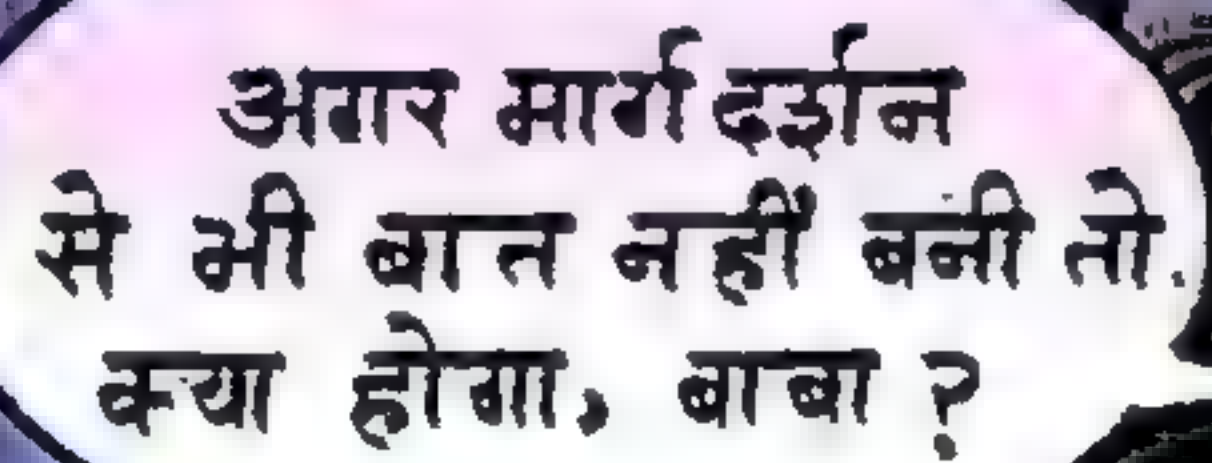 अगर मार्ग दर्शन
से भी बात नहीं बनी तो.
क्या होगा, बाबा ?